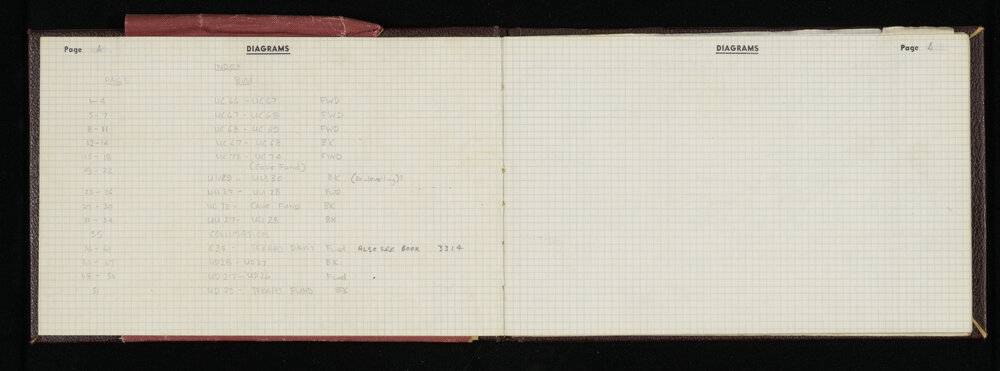 Page A DIAGRAMS
INDEX
PAGE RUN
1-4 UC66 - UC67 FWD
5-7 UC67 - UC68 FWD
8-11 UC68 - UC69 FWD
12-14 UC67 - UC68 BK
15-18 UC73 - UC74 FWD
(Cave Fund)
19-22
UU29 - UU30 BK
UU27 - UU28 FWD
29-30 UC73 - CAVE FUND BK
31-34 UU27 - UU28 BK
35 COLLIMATION
36-41 TEKAPO DAM Fwd ALSO SEE BOOK 3314
UD28 - UD27 BK
48-50 UD27 - UD26 Fwd
51 TEKAPO FUND BK
DIAGRAMS Page